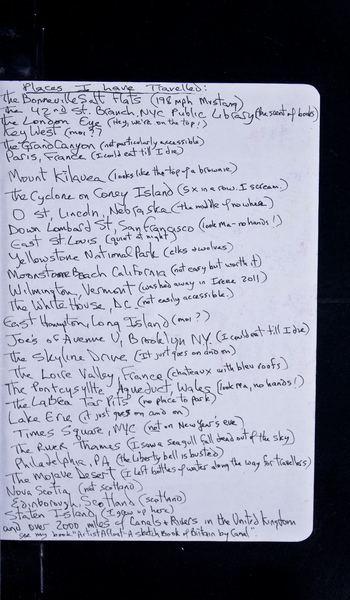 Places I have Travelled:
The Bonneville Salt Flats (198 mph Mustang)
The 42nd St. Branch, NYC Public Library (the scent of books)
The London Eye (Hey, we're on the top!)
Key West (moi??)
The Grand Canyon (not particularly accessible)
Paris, France (I could eat till I die)
Mount Kilauea (looks like the top of a brownie)
The Cyclone on Coney Island (5x in a row. I scream!)
O St, Lincoln, Nebraska (the middle of nowhere)
Down Lombard St, San Francisco (look ma-no hands!)
East St Louis (quiet at night)
Yellowstone National Park (elks & wolves)
Moonstone Beach California (not easy but worth it)
Wilmington, Vermont (washed away in Irene 2011)
The White House, D.C. (not easily accessible.)
East Hampton, Long Island (moi?)
Joe's of Avenue U, Brooklyn N.Y. (I could eat till I die)
The Skyline Drive (It just goes on and on)
The Loire Valley, France (chateaux with bleu roofs)
The Pontcysyllte Aqueduct, Wales (look Ma, no hands!)
The LaBrea Tar Pits (no place to park)
Lake Erie (it just goes on and on)
Times Square, NYC (not on New Year's eve)
The River Thames (I saw a seagull fall dead out of the sky)
Philadelphia, PA (the liberty bell is busted)
The Mojave Desert (I left bottles of water along the way for travellers)
Nova Scotia (not scotland)
Edinborough, Scotland (scotland)
Staten Island (I grew up here)
and over 2000 miles of Canals + Rivers in the United Kingdom
see my book "Artist Afloat - A sketch Book of Britain by Canal"